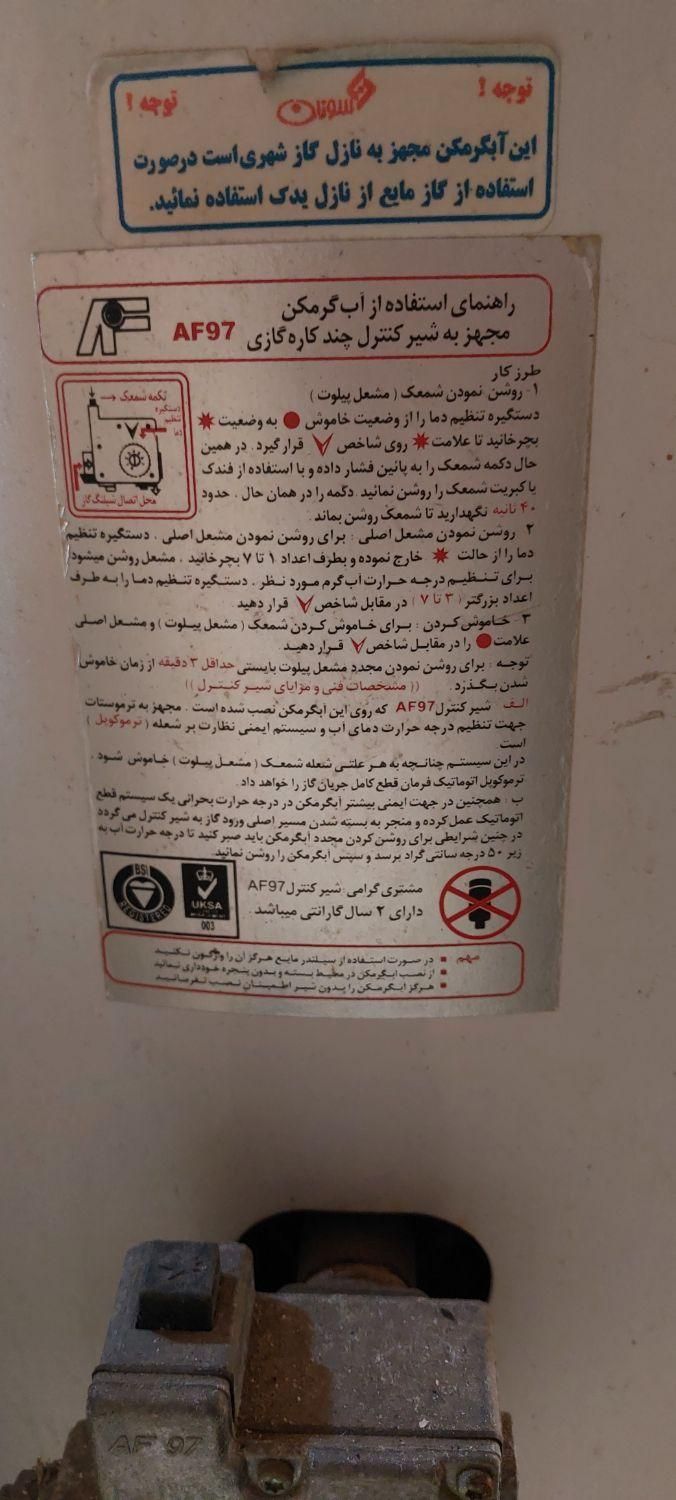 توجه !
بوتان
توجه !
این آبگرمکن مجهز به نازل گاز شهری است درصورت
استفاده از گاز مایع از نازل یدک استفاده نمائید.
راهنمای استفاده از آب گرمکن
مجهز به شیر کنترل چند کاره گازی AF97
طرز کار
۱- روشن نمودن شمعک ( مشعل پیلوت )
دستگیره تنظیم دما را از وضعیت خاموش به وضعیت
بچرخانید تا علامت روی شاخص قرار گیرد . در همین
حال دکمه شمعک را به پائین فشار داده و با استفاده از فندک
یا کبریت شمعک را روشن نمائید. دکمه را در همان حال . حدود
۴۰ ثانیه نگهدارید تا شمعک روشن بماند .
دکمه شمعک
دستگیره
تنظیم
دما
محل اتصال شیلنگ گاز
۲ روشن نمودن مشعل اصلی : برای روشن نمودن مشعل اصلی . دستگیره تنظیم
دما را از حالت خارج نموده و بطرف اعداد ۱ تا ۷ بچرخانید . مشعل روشن میشود
برای تنظیم درجه حرارت آب گرم مورد نظر . دستگیره تنظیم دما را به طرف
اعداد بزرگتر ( ۳ تا ۷ ) در مقابل شاخص قرار دهید .
۳- خاموش کردن : برای خاموش کردن شمعک ( مشعل پیلوت ) و مشعل اصلی
علامت را در مقابل شاخص قرار دهید .
توجه : برای روشن نمودن مجدد مشعل پیلوت بایستی حداقل ۳ دقیقه از زمان خاموش
شدن بگذرد . (( مشخصات فنی و مزایای شیر کنترل ))
الف شیر کنترل AF97 که روی این آبگرمکن نصب شده است . مجهز به ترموستات
جهت تنظیم درجه حرارت دمای آب و سیستم ایمنی نظارت بر شعله ( ترموکوپل )
است .
در این سیستم چنانچه به هر علتی شعله شمعک ( مشعل پیلوت ) خاموش شود .
ترموکوپل اتوماتیک فرمان قطع کامل جریان گاز را خواهد داد .
ب : همچنین در جهت ایمنی بیشتر آبگرمکن در درجه حرارت بحرانی یک سیستم قطع
اتوماتیک عمل کرده و منجر به بسته شدن مسیر اصلی ورود گاز به شیر کنترل می گردد
در چنین شرایطی برای روشن کردن مجدد آبگرمکن باید صبر کنید تا درجه حرارت آب به
زیر ۵۰ درجه سانتی گراد برسد و سپس آبگرمکن را روشن نمائید.
مشتری گرامی : شیر کنترل AF97
دارای ۲ سال گارانتی میباشد .
BSI
REGISTERED
UKSA
003
مهم
در صورت استفاده از سیلندر مایع هرگز آن را واژگون نکنید
از نصب آبگرمکن در محیط بسته و بدون پنجره خودداری نمائید
هرگز آبگرمکن را بدون شیر اطمینان نصب نفرمائید
AF 97